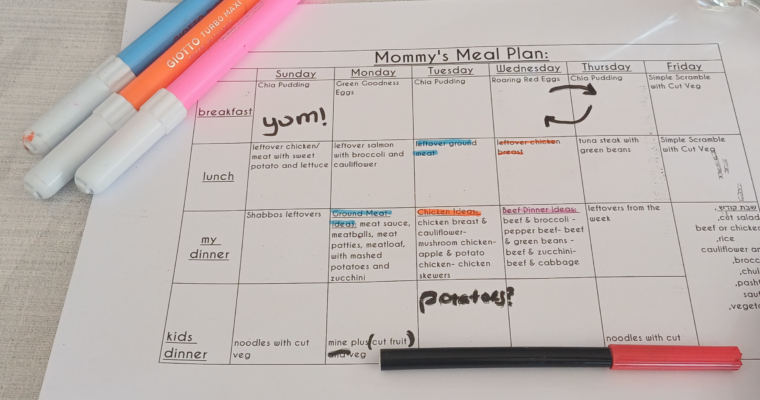 GIOTTO TURBO MAXI
Mommy's Meal Plan:
Sunday Monday Tuesday Wednesday Thursday Friday
breakfast
Chia Pudding
yum!
Green Goodness
Eggs
Chia Pudding
Roaring Red Eggs
Chia Pudding
Simple Scramble
with Cut Veg
lunch
leftover chicken/
meat with sweet
potato and lettuce
leftover salmon
with broccoli and
cauliflower
leftover ground
meat
leftover chicken
breast
tuna steak with
green beans
Simple Scramble
with Cut Veg
my
dinner
Shabbos leftovers
Ground Meat
Ideas: meat sauce,
meatballs, meat
patties, meatloaf,
with mashed
potatoes and
zucchini
Chicken Ideas:
chicken breast &
cauliflower-
mushroom chicken-
apple & potato
chicken- chicken
skewers
Beef Dinner ideas:
beef & broccoli -
pepper beef- beef
& green beans -
beef & zucchini-
beef & cabbage
leftovers from the
week
שבת קודש
,cut salad
beef or chicken
,rice
cauliflower
,brocc
,chul
,pash
sau
,veget
kids
dinner
noodles with cut
veg
mine plus (cut fruit)
veg
potatoes?
noodles with cut